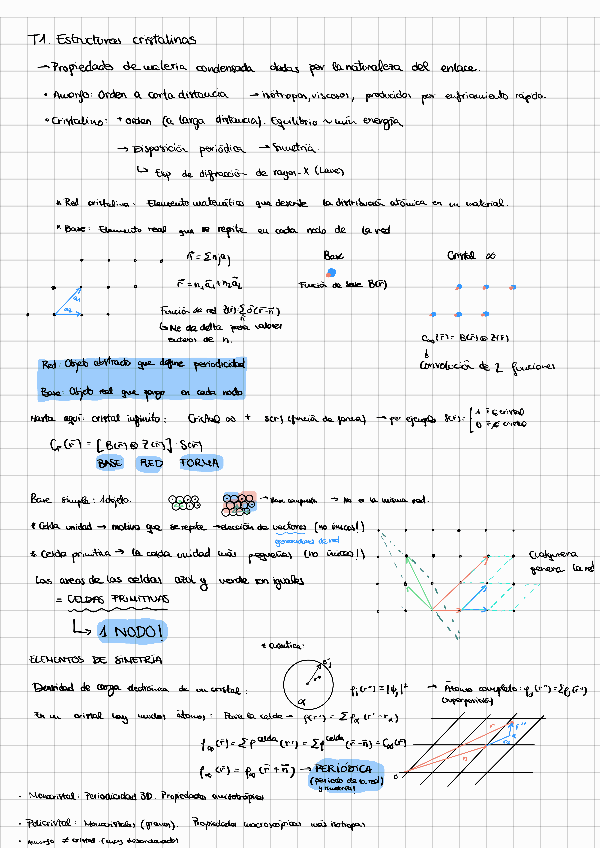 T1. Estructuras cristalinas
→ Propiedades de materia condensada dadas por la naturaleza del enlace.
• Amorfo: Orden a corta distancia → isótropos, viscosos, producidos por enfriamiento rápido.
• Cristalino: + orden (a larga distancia). Equilibrio ~ mín energía
→ Disposición periódica → Simetría.
↳ Exp de difracción de rayos-X (Laue)
* Red cristalina: Elemento matemático que describe la distribución atómica en un material.
* Base: Elemento real que se repite en cada nodo de la red
Base Cristal ∞
a₁
a₂
Función de base B(r̄)
Función de red
↳ de delta para valores enteros de n.
Convolución de 2 funciones
Red: Objeto abstracto que define periodicidad
Base: Objeto real que pongo en cada nodo
Hasta aquí: cristal infinito: Cristal ∞ + S(r̄) (función de forma) → por ejemplo S(r̄) =
1 r̄ ∈ cristal
0 r̄ ∉ cristal
C_F(r̄) = [B(r̄) ⊗ Z(r̄)] · S(r̄)
BASE RED FORMA
Base simple: 1 objeto. → Base compuesta → No es la misma red.
* Celda unidad → motivo que se repite → elección de vectores (no únicos!)
generadores de red
* Celda primitiva → la celda unidad más pequeña (no único!)
Cualquiera genera la red
Las áreas de las celdas azul y verde son iguales
= CELDAS PRIMITIVAS
↳ 1 NODO!
ELEMENTOS DE SIMETRÍA
* cuántica:
Densidad de carga electrónica de un cristal:
α
→ Átomo completo:
(superposición)
En un cristal hay muchos átomos: Para la celda →
→ PERIÓDICA
(periodo de la red)
• Monocristal: Periodicidad 3D. Propiedades anisotrópicas
• Policristal: Monocristales (granos). Propiedades macroscópicas más isótropas
• Amorfo ≠ cristal (muy desordenado)